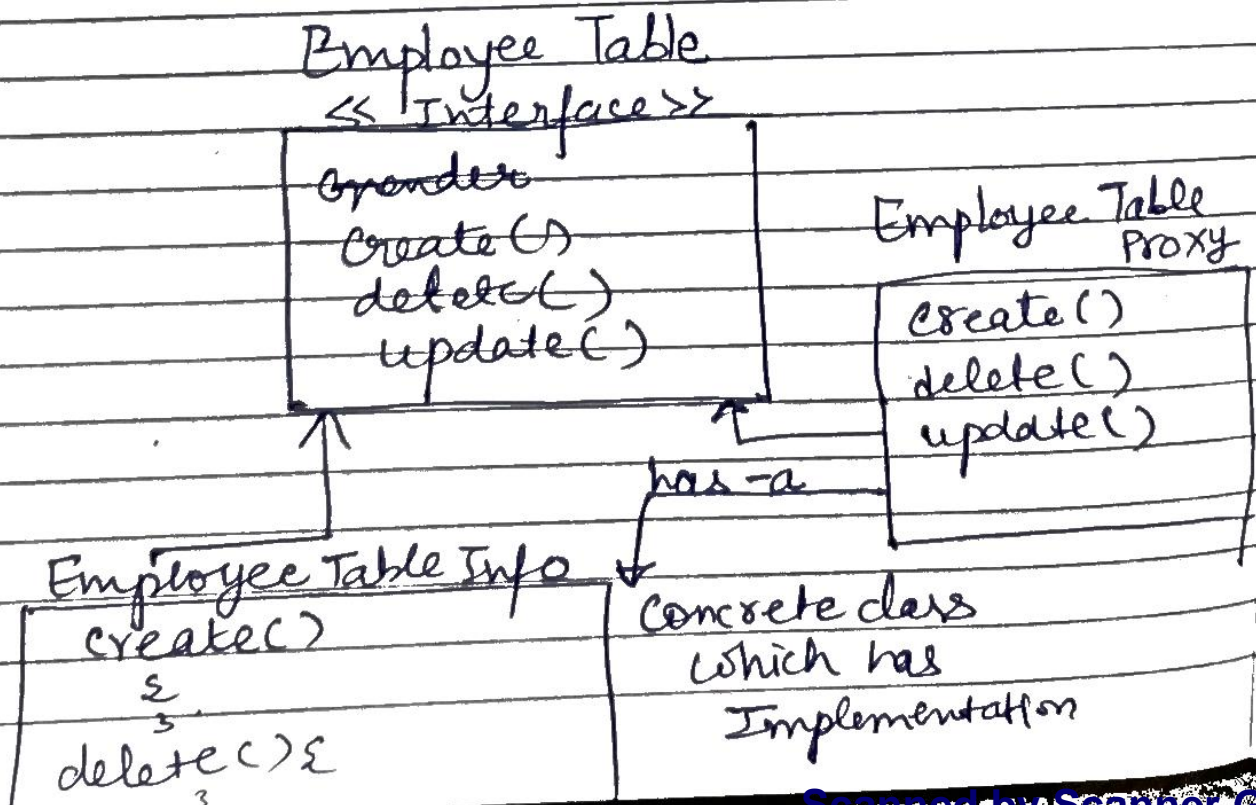 Employee Table
<< Interface >>
create()
delete()
update()
Employee Table
Proxy
create()
delete()
update()
has-a
Employee Table Info
create()
{
}
delete(){
}
Concrete class
which has
Implementation
Scanned by Scanner